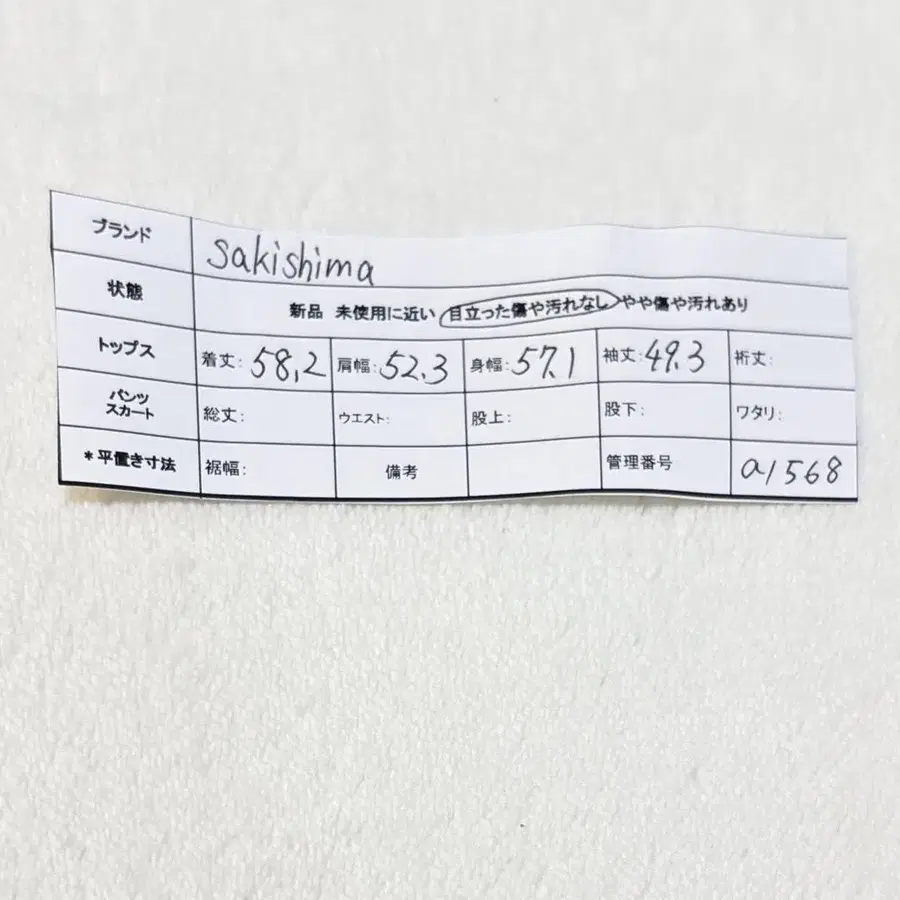 ブランド sakishima
状態 新品 未使用に近い 目立った傷や汚れなし やや傷や汚れあり
トップス 着丈: 58.2 肩幅: 52.3 身幅: 57.1 袖丈: 49.3 裄丈:
パンツ
スカート 総丈: ウエスト: 股上: 股下: ワタリ:
*平置き寸法 裾幅: 備考 管理番号 a1568